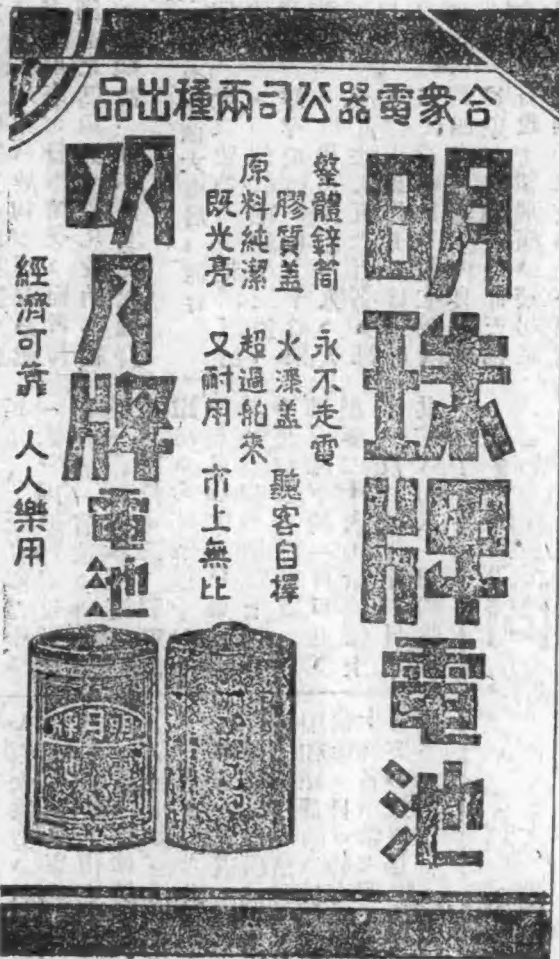 合衆電器公司兩種出品
明珠牌電池
整體鋅筒　永不走電
膠質盖　火漆盖　聽客自擇
原料純潔　超過舶來
既光亮　又耐用　市上無比
明月牌電池
經濟可靠　人人樂用
明月牌